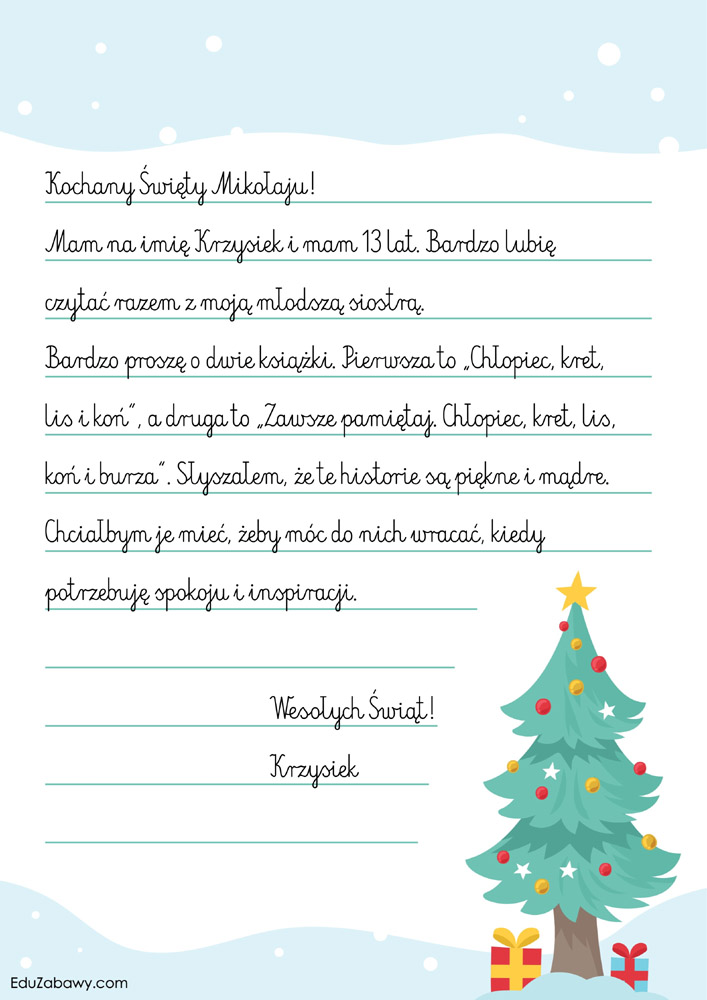 Kochany Święty Mikołaju!
Mam na imię Krzysiek i mam 13 lat. Bardzo lubię
czytać razem z moją młodszą siostrą.
Bardzo proszę o dwie książki. Pierwsza to „Chłopiec, kret,
lis i koń”, a druga to „Zawsze pamiętaj. Chłopiec, kret, lis,
koń i burza”. Słyszałem, że te historie są piękne i mądre.
Chciałbym je mieć, żeby móc do nich wracać, kiedy
potrzebuję spokoju i inspiracji.
Wesołych Świąt!
Krzysiek
EduZabawy.com